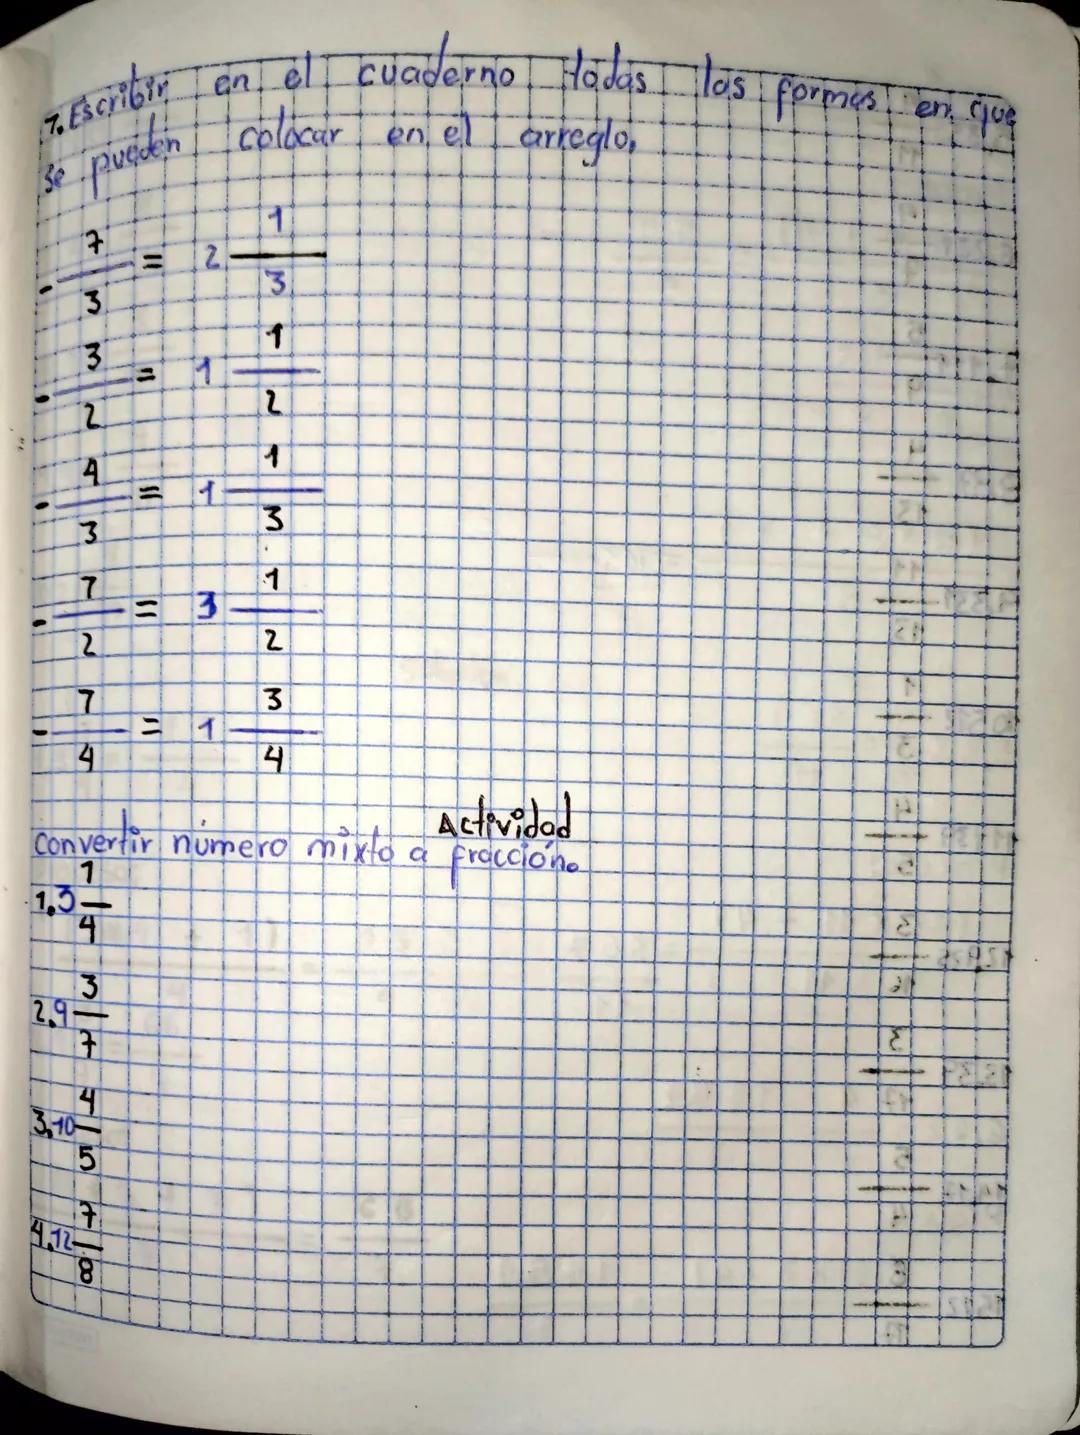 7. Escribir en el cuaderno todas las formas en que
se pueden colocar en el arreglo.
- 7/3 = 2 1/3
- 3/2 = 1 1/2
- 4/3 = 1 1/3
- 7/2 = 3 1/2
- 7/4 = 1 3/4
Actividad
convertir número mixto a fracción.
1. 3 1/4
2. 9 3/7
3. 10 4/5
4. 12 7/8